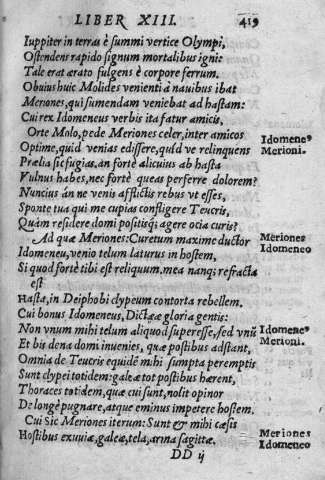 LIBER XIII. 419
Iuppiter in terras è summi vertice Olympi,
Ostendens rapido signum mortalibus ignis
Tale erat ærato fulgens è corpore ferrum.
Obuius huic Molides venienti à nauibus ibat
Meriones, qui sumendam veniebat ad hastam:
Cui rex Idomeneus verbis ita fatur amicis,
Orte Molo, pede Meriones celer, inter amicos
Idomene9
Optime, quid venias edissere, quid ve relinquens
Merioni.
Prælia sic fugias, an fortè alicuius ab hasta
Vulnus habes, nec fortè queas perferre dolorem?
Nuncius án ne venis afflictis rebus vt esses,
Sponte tua qui me cupias confligere Teucris,
Quàm residere domi positisq; agere ocia curis?
Ad quæ Meriones: Curetum maxime ductor
Meriones
Idomeneu, venio telum laturus in hostem,
Idomeneo
Si quod fortè tibi est reliquum. mea nanq; refracta
est
Hasta, in Deiphobi clypeum contorta rebellem.
Cui bonus Idomeneus, Dictææ gloria gentis:
Non vnum mihi telum aliquod superesse, sed vnũ
Idomene9
Et bis dena domi inuenies, quæ postibus adstant,
Merioni.
Omnia de Teucris equidẽ mihi sumpta peremptis
Sunt clypei totidem: galeæ tot postibus hærent,
Thoraces totidem, quæ cui sunt, nolit opinor
De longè pugnare, atque eminus impetere hostem.
Cui Sic Meriones iterum: Sunt & mihi cæsis
Meriones
Hostibus exuuiæ, galeæ, tela, arma sagittæ,
Idomeneo
DD ij